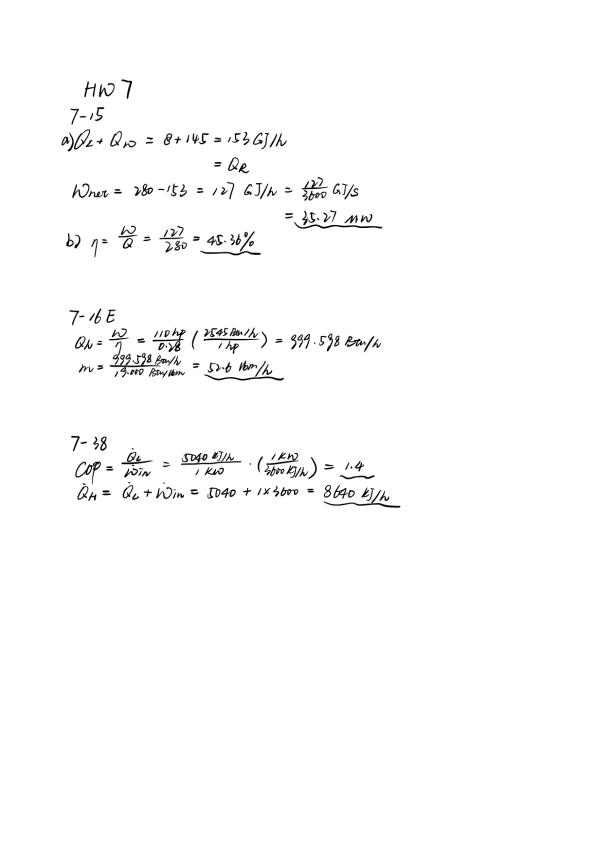 HW 7
7-15
a) QL + QW = 8 + 145 = 153 GJ/h
= QR
Wnet = 280 - 153 = 127 GJ/h = 127/3600 GJ/s
= 35.27 MW
b) η = W/Q = 127/280 = 45.36%
7-16 E
QH = W/η = 110 hp/0.28 (2545 Btu/h / 1 hp) = 999.598 Btu/h
m = 999.598 Btu/h / 19.000 Btu/lbm = 52.6 lbm/h
7-38
COP = Q̇L/Ẇin = 5040 kJ/h / 1 kW · (1 kW / 3600 kJ/h) = 1.4
Q̇H = Q̇L + Ẇin = 5040 + 1×3600 = 8640 kJ/h